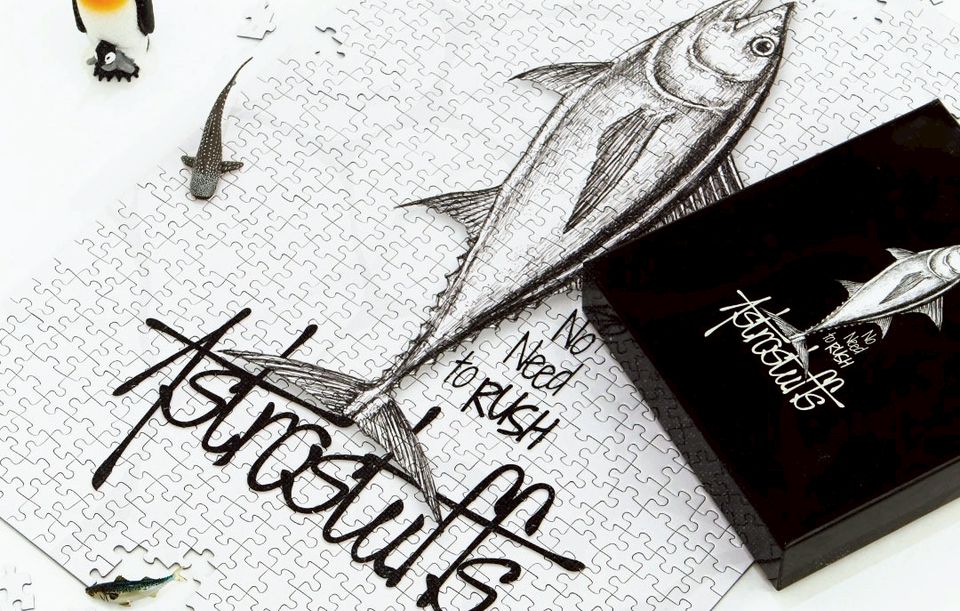 Astrostuffs
No
Need
to RUSH
Astrostuffs
No
Need
to RUSH